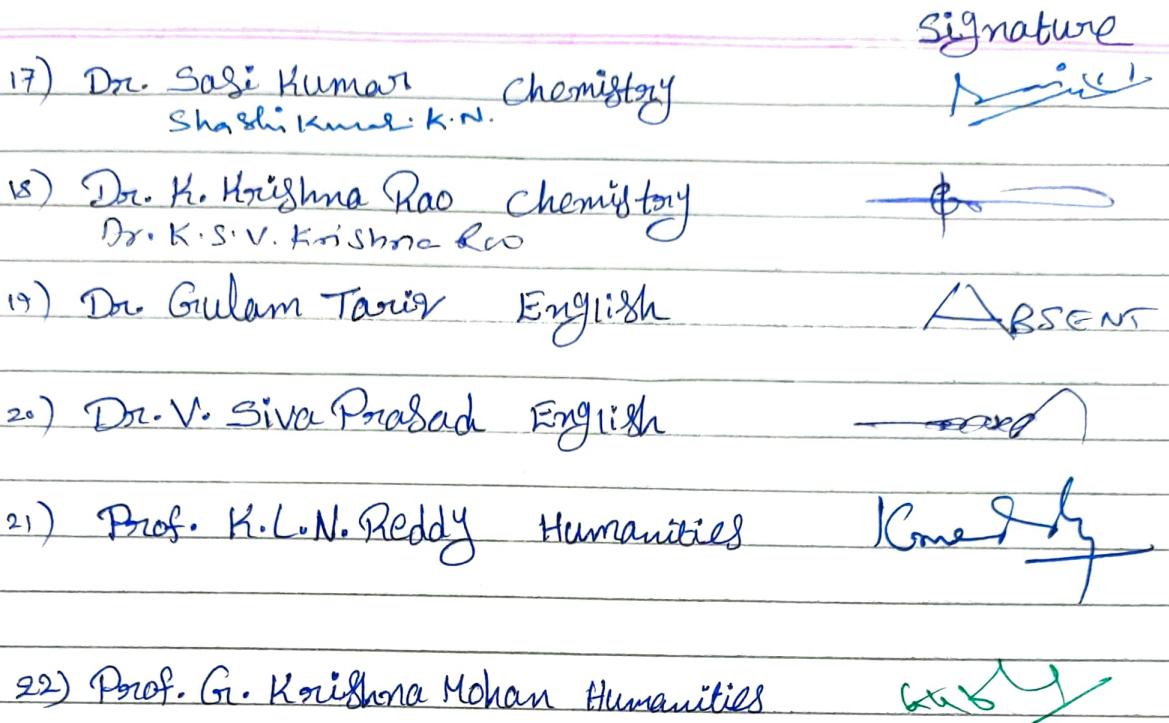 Signature
17) Dr. Sasi Kumar Chemistry
Shashi Kumar. K.N.
18) Dr. K. Krishna Rao Chemistry
Dr. K.S.V. Krishna Rao
19) Dr. Gulam Tariq English ABSENT
20) Dr. V. Siva Prasad English
21) Prof. K.L.N. Reddy Humanities
22) Prof. G. Krishna Mohan Humanities